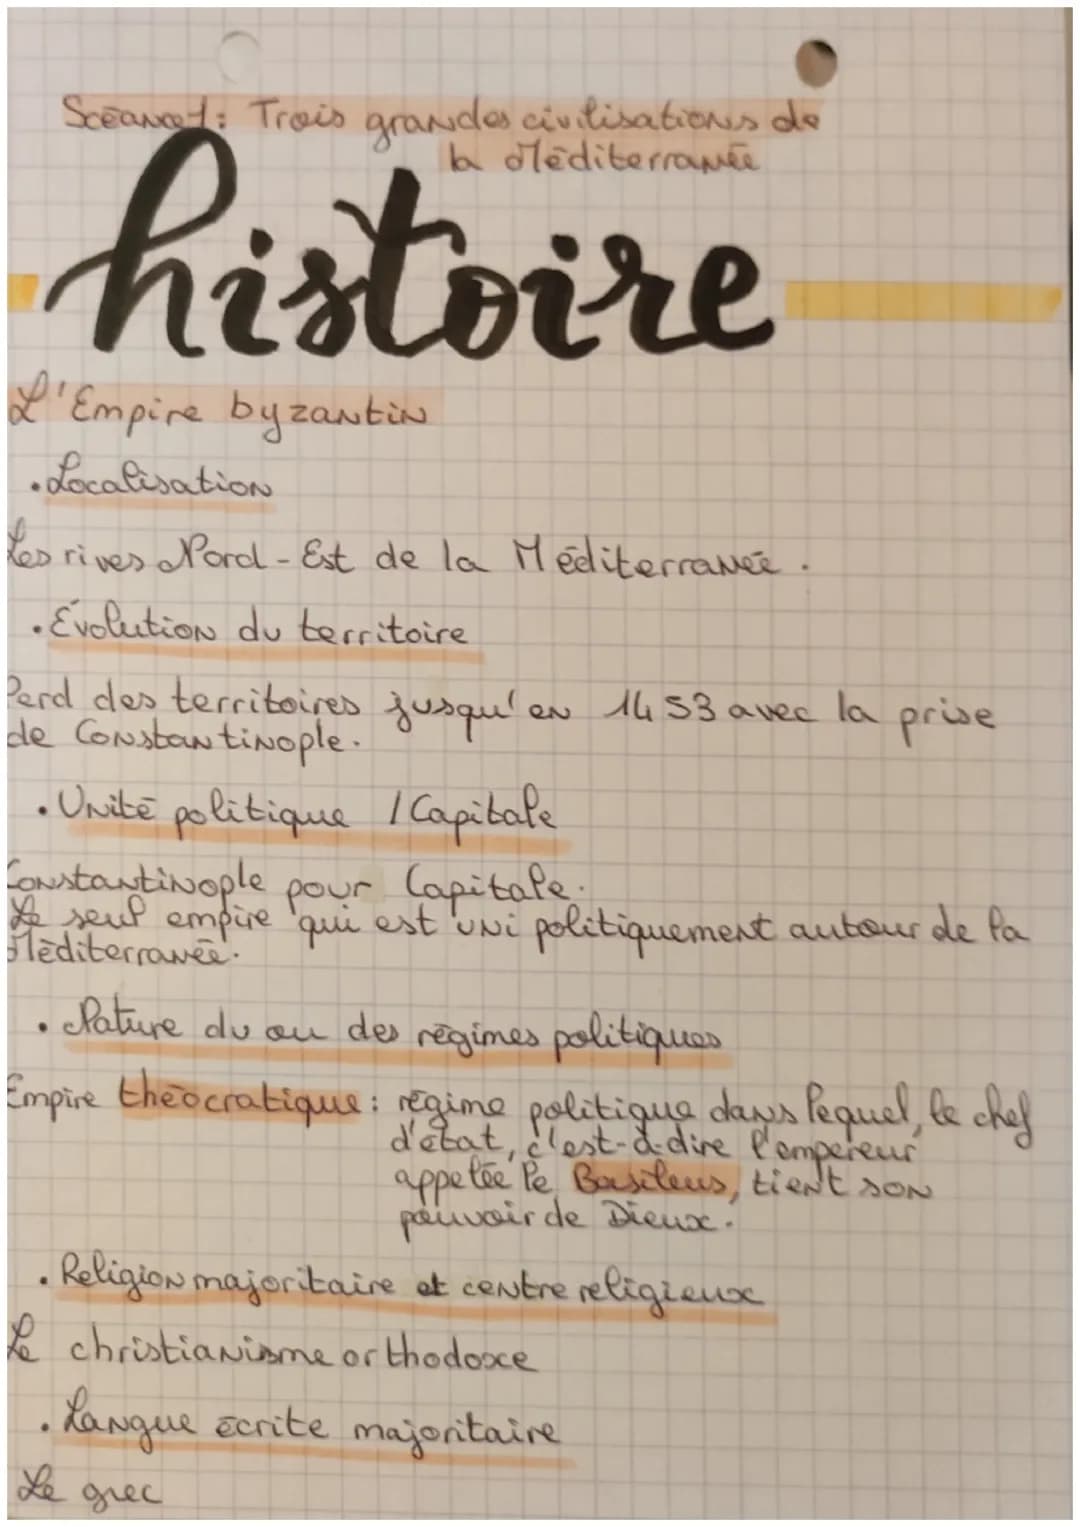 Scéance1: Trois grandes civilisations de
la Méditerranée
histoire
L'Empire byzantin
• Localisation
Les rives Nord-Est de la Méditerranée.
• Évolution du territoire
Perd des territoires jusqu'en 1453 avec la prise
de Constantinople.
• Unité politique / Capitale
Constantinople pour Capitale.
Le seul empire qui est uni politiquement autour de la
Méditerranée.
• Nature du ou des régimes politiques
Empire théocratique: régime politique dans lequel, le chef
d'état, c'est-à-dire l'empereur
appelée le Basileus, tient son
pouvoir de Dieux.
• Religion majoritaire et centre religieux
Le christianisme orthodoxe
• Langue écrite majoritaire
Le grec